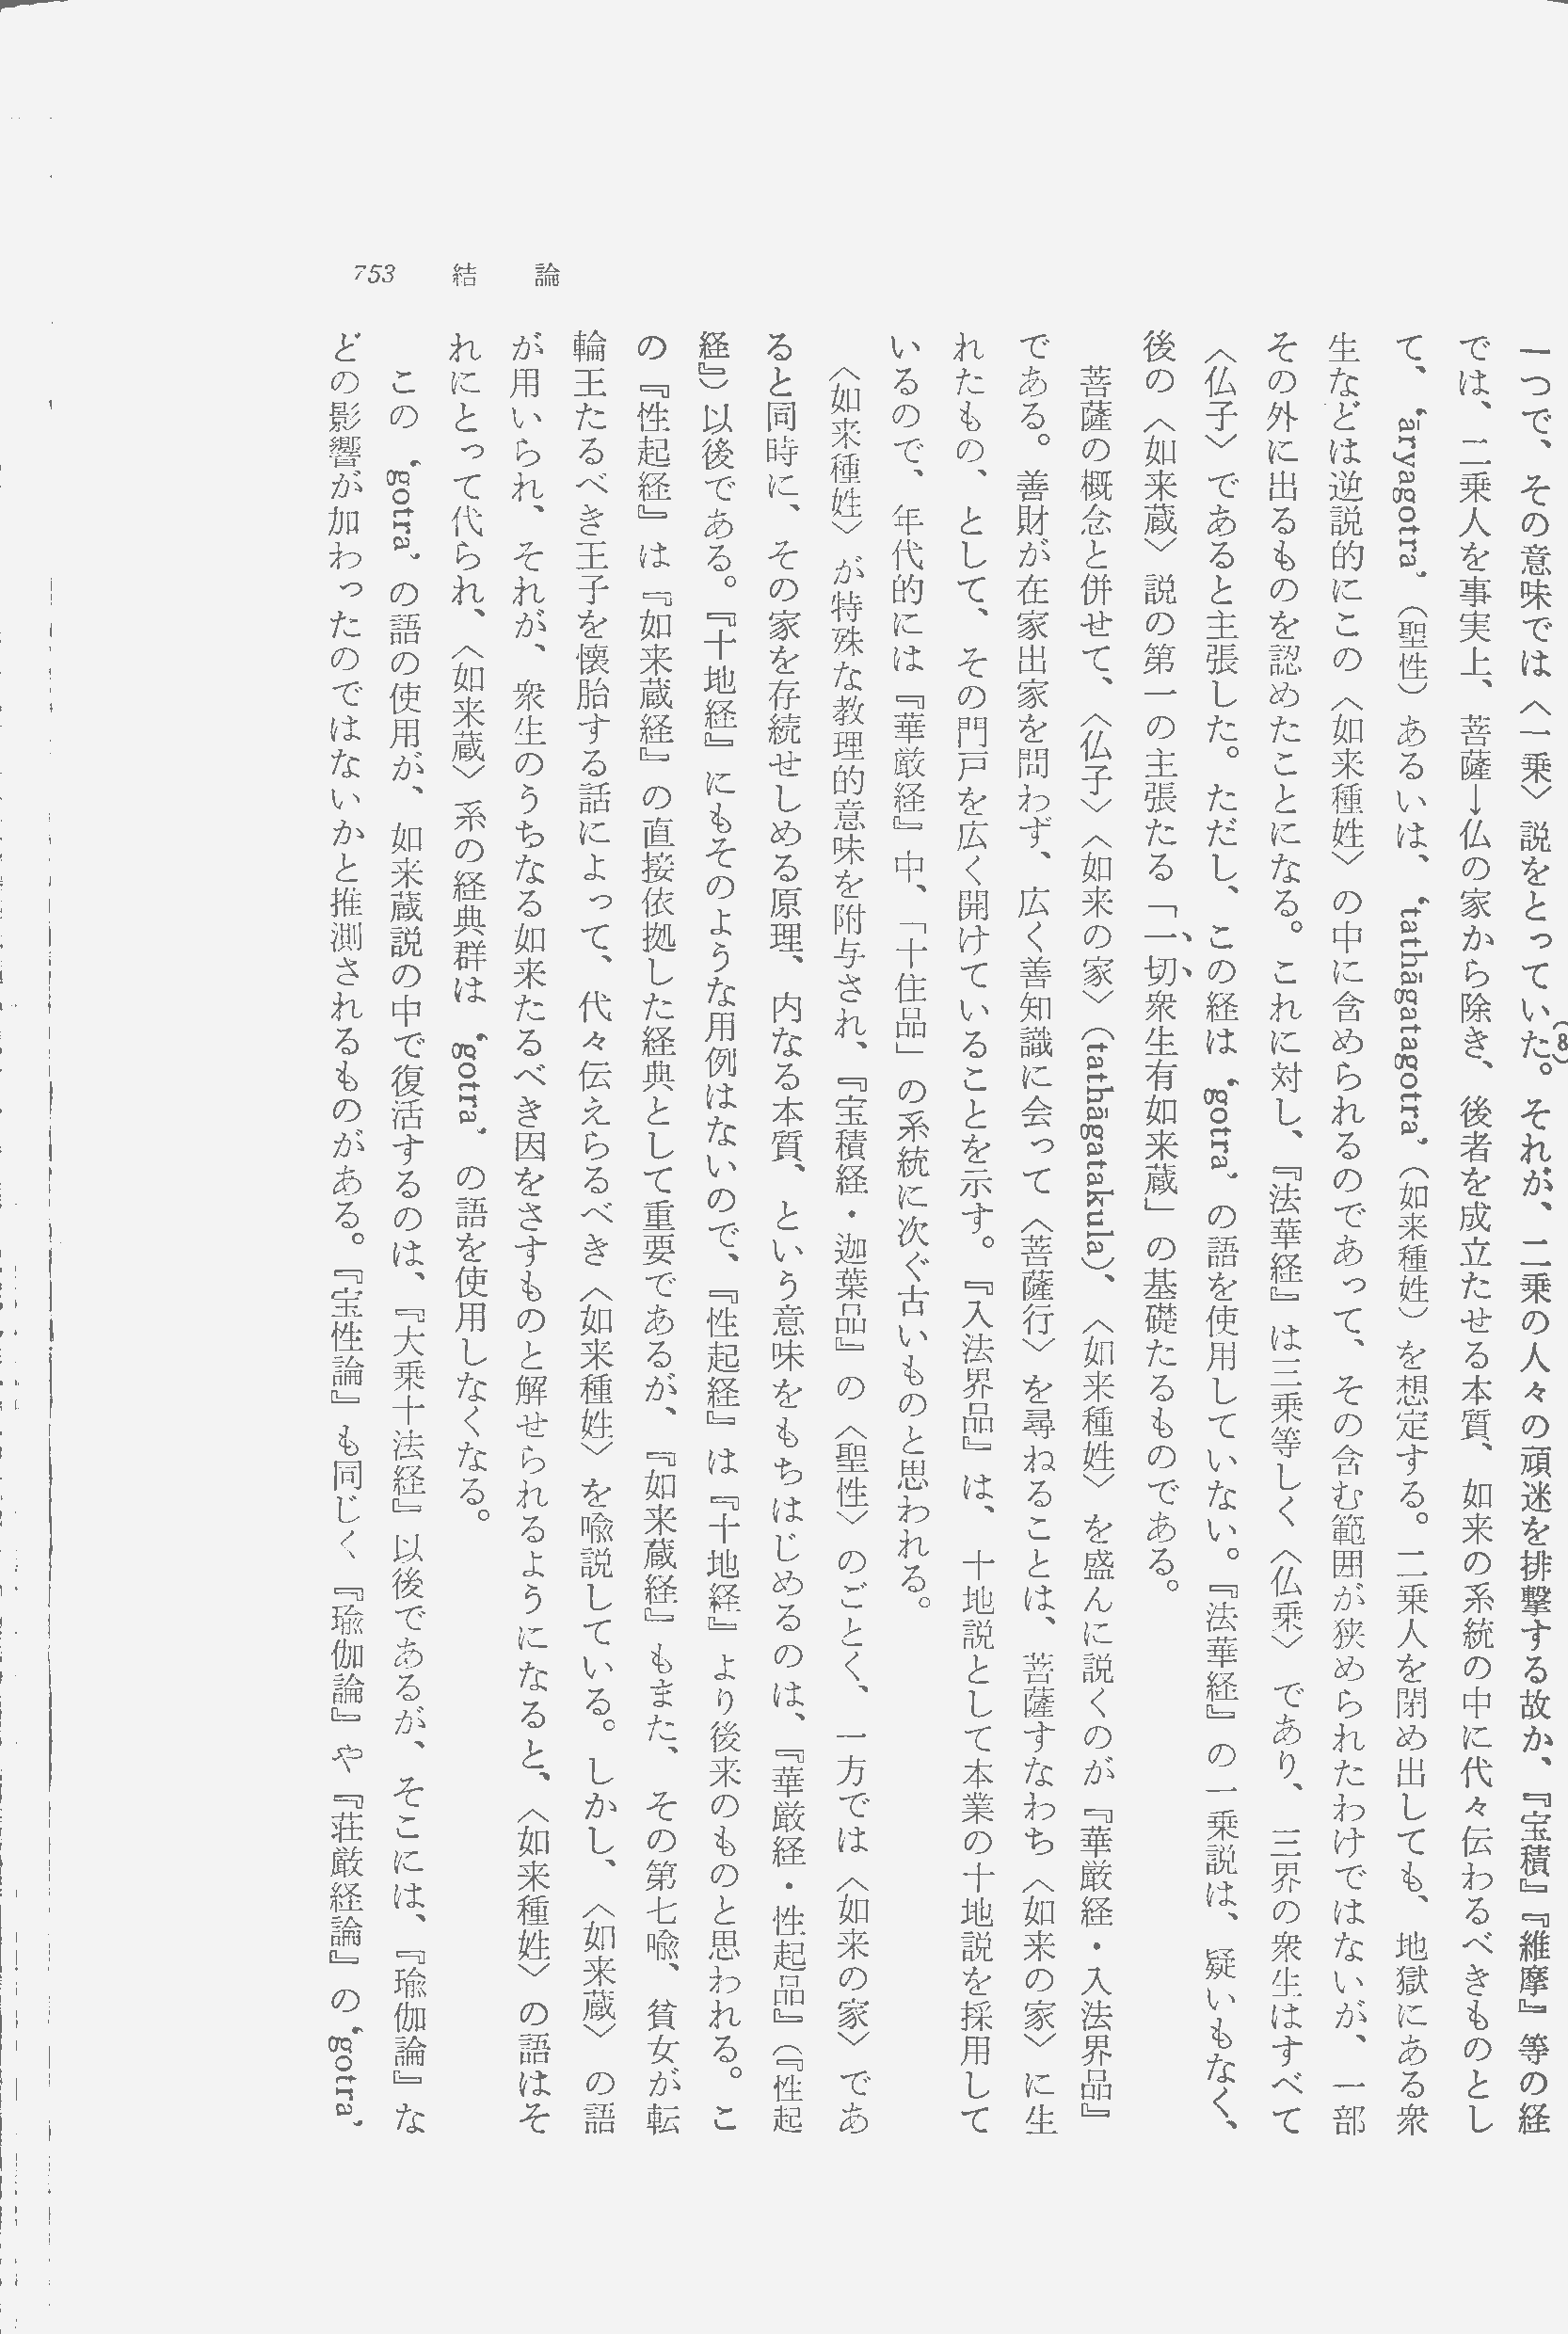 一つで、その意味では〈一乗〉説をとっていた。(8)それが、二乗の人々の頑迷を排撃する故か、『宝積』『維摩』等の経
では、二乗人を事実上、菩薩→仏の家から除き、後者を成立たせる本質、如来の系統の中に代々伝わるべきものとし
て、‘āryagotra’（聖性）あるいは、‘tathāgatagotra’（如来種姓）を想定する。二乗人を閉め出しても、地獄にある衆
生などは逆説的にこの〈如来種姓〉の中に含められるのであって、その含む範囲が狭められたわけではないが、一部
その外に出るものを認めたことになる。これに対し、『法華経』は三乗等しく〈仏乗〉であり、三界の衆生はすべて
〈仏子〉であると主張した。ただし、この経は‘gotra’の語を使用していない。『法華経』の一乗説は、疑いもなく、
後の〈如来蔵〉説の第一の主張たる「一切衆生有如来蔵」の基礎たるものである。
菩薩の概念と併せて、〈仏子〉〈如来の家〉（tathāgatakula）、〈如来種姓〉を盛んに説くのが『華厳経・入法界品』
である。善財が在家出家を問わず、広く善知識に会って〈菩薩行〉を尋ねることは、菩薩すなわち〈如来の家〉に生
れたもの、として、その門戸を広く開けていることを示す。『入法界品』は、十地説として本業の十地説を採用して
いるので、年代的には『華厳経』中、「十住品」の系統に次ぐ古いものと思われる。
〈如来種姓〉が特殊な教理的意味を附与され、『宝積経・迦葉品』の〈聖性〉のごとく、一方では〈如来の家〉であ
ると同時に、その家を存続せしめる原理、内なる本質、という意味をもちはじめるのは、『華厳経・性起品』（『性起
経』）以後である。『十地経』にもそのような用例はないので、『性起経』は『十地経』より後来のものと思われる。こ
の『性起経』は『如来蔵経』の直接依拠した経典として重要であるが、『如来蔵経』もまた、その第七喩、貧女が転
輪王たるべき王子を懐胎する話によって、代々伝えらるべき〈如来種姓〉を喩説している。しかし、〈如来蔵〉の語
が用いられ、それが、衆生のうちなる如来たるべき因をさすものと解せられるようになると、〈如来種姓〉の語はそ
れにとって代られ、〈如来蔵〉系の経典群は‘gotra’の語を使用しなくなる。
この‘gotra’の語の使用が、如来蔵説の中で復活するのは、『大乗十法経』以後であるが、そこには、『瑜伽論』な
どの影響が加わったのではないかと推測されるものがある。『宝性論』も同じく『瑜伽論』や『荘厳経論』の‘gotra’
753 結 論